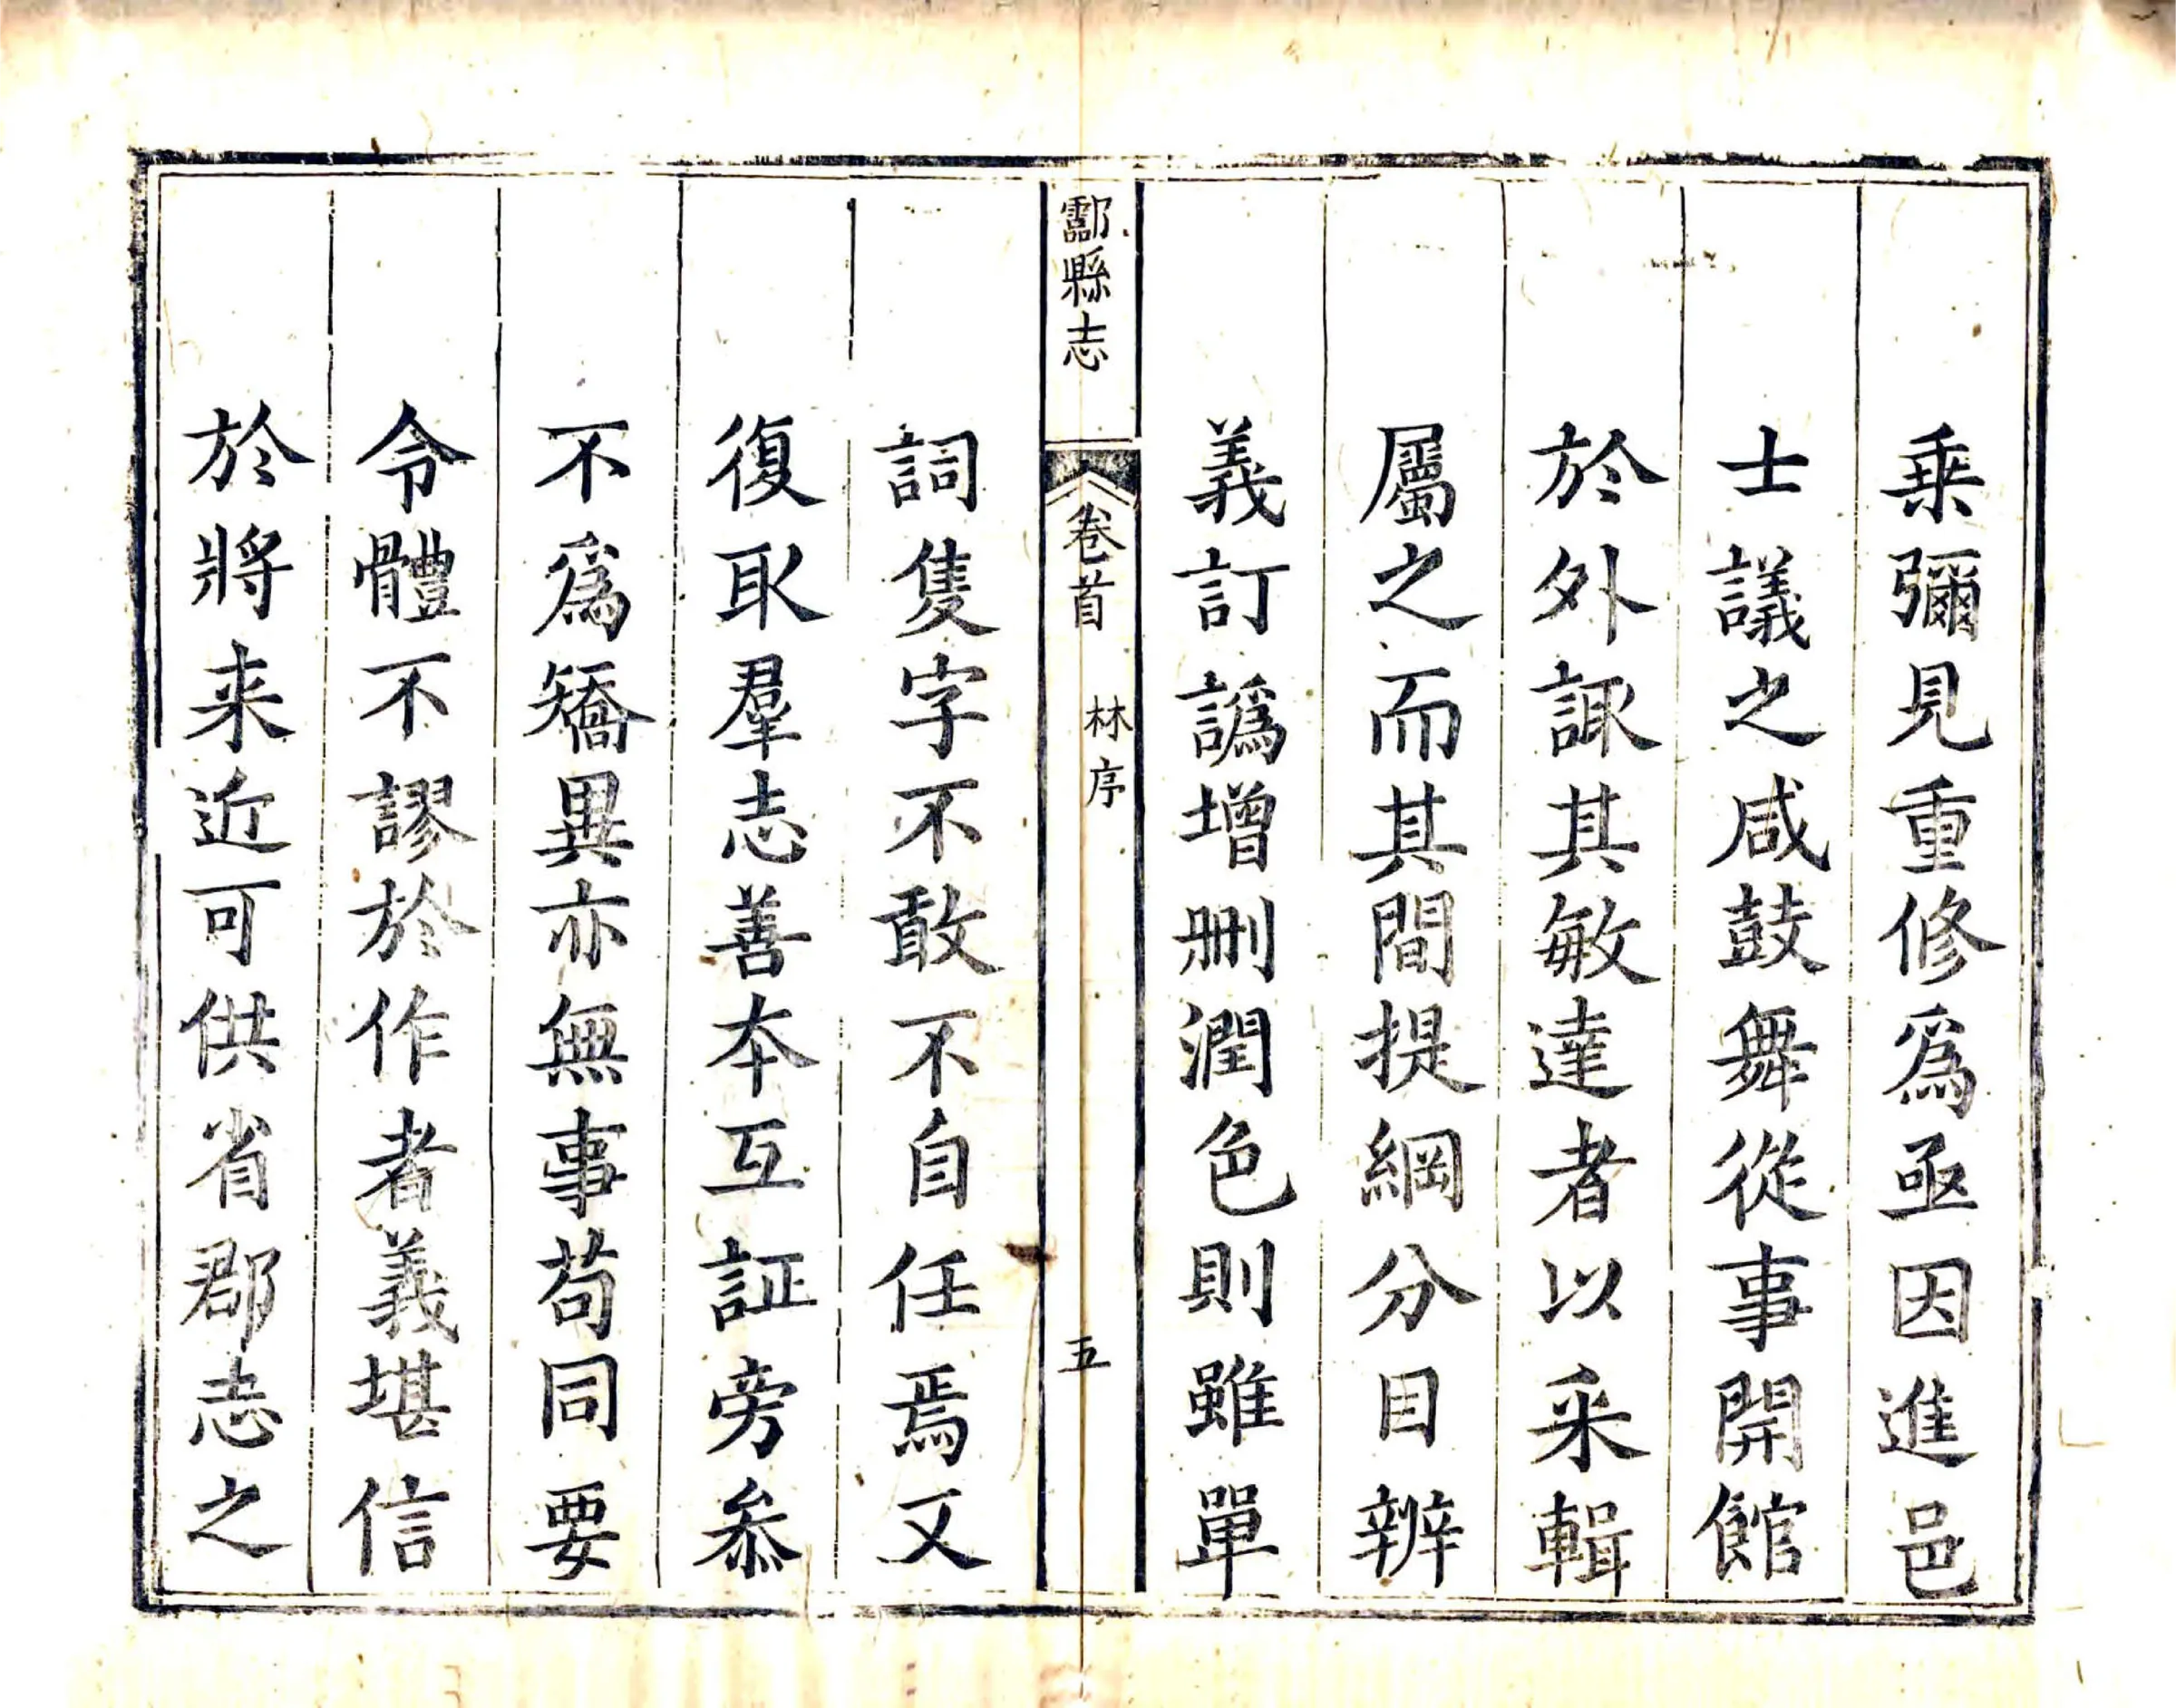 乗彌見重修爲亟因進邑
士議之咸鼓舞從事開館
於外諏其敏達者以采輯
屬之而其間提綱分目辨
義訂譌增刪潤色則雖單
酃縣志
卷首
林序
五
詞隻字不敢不自任焉又
復取羣志善本互証旁叅
不爲矯異亦無事苟同要
令體不謬於作者義堪信
於將来近可供省郡志之